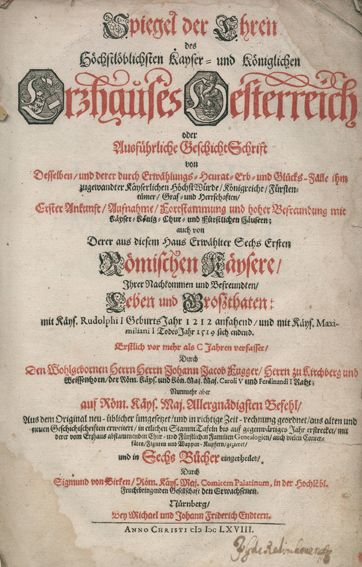 Spiegel der Ehren
des
Höchstlöblichsten Kayser- und Königlichen
Erzhauses Oesterreich
oder
Ausführliche GeschichtSchrift
von
Desselben/ und derer durch Erwählungs- Heurat- Erb- und Glücks-Fälle ihm
zugewandter Käyserlichen HöchstWürde/ Königreiche/ Fürsten-
tümer/ Graf- und Herrschaften/
Erster Ankunft/ Aufnahme/ Fortstammung und hoher Befreundung mit
Käyser- König- Chur- und Fürstlichen Häusern;
auch von
Derer aus diesem Haus Erwählter Sechs Ersten
Römischen Käysere/
Ihrer Nachkommen und Befreundten/
Leben und Großthaten:
mit Käys. Rudolphi I GeburtsJahr 1212 anfahend/ und mit Käys. Maxi-
miliani I TodesJahr 1519 sich endend.
Erstlich vor mehr als C Jahren verfasset/
Durch
Den Wohlgebornen Herrn Herrn Johann Jacob Fugger/ Herrn zu Kirchberg und
Weissenhorn/ der Röm. Käys. und Kön. Maj. Maj. Caroli V und Ferdinandi I Raht;
Nunmehr aber
auf Röm. Käys. Maj. Allergnädigsten Befehl/
Aus dem Original neu-üblicher ümgesetzet/ und in richtige Zeit-rechnung geordnet/ aus alten und
neuen Geschichtschriften erweitert/ in etlichen StammTafeln bis auf gegenwärtiges Jahr erstrecket/ mit
derer vom Erzhaus abstammenden Chur- und Fürstlichen Familien Genealogien/ auch vielen Conter-
fäten/ Figuren und Wappen-Kupfern/ gezieret/
und in Sechs Bücher eingetheilet/
Durch
Sigmund von Birken/ Röm. Käys. Maj. Comitem Palatinum, in der Hochlöbl.
Fruchtbringenden Gesellschaft den Erwachsenen.
Nürnberg/
Bey Michael und Johann Friderich Endtern.
ANNO CHRISTI CIↃ IↃC LXVIII.